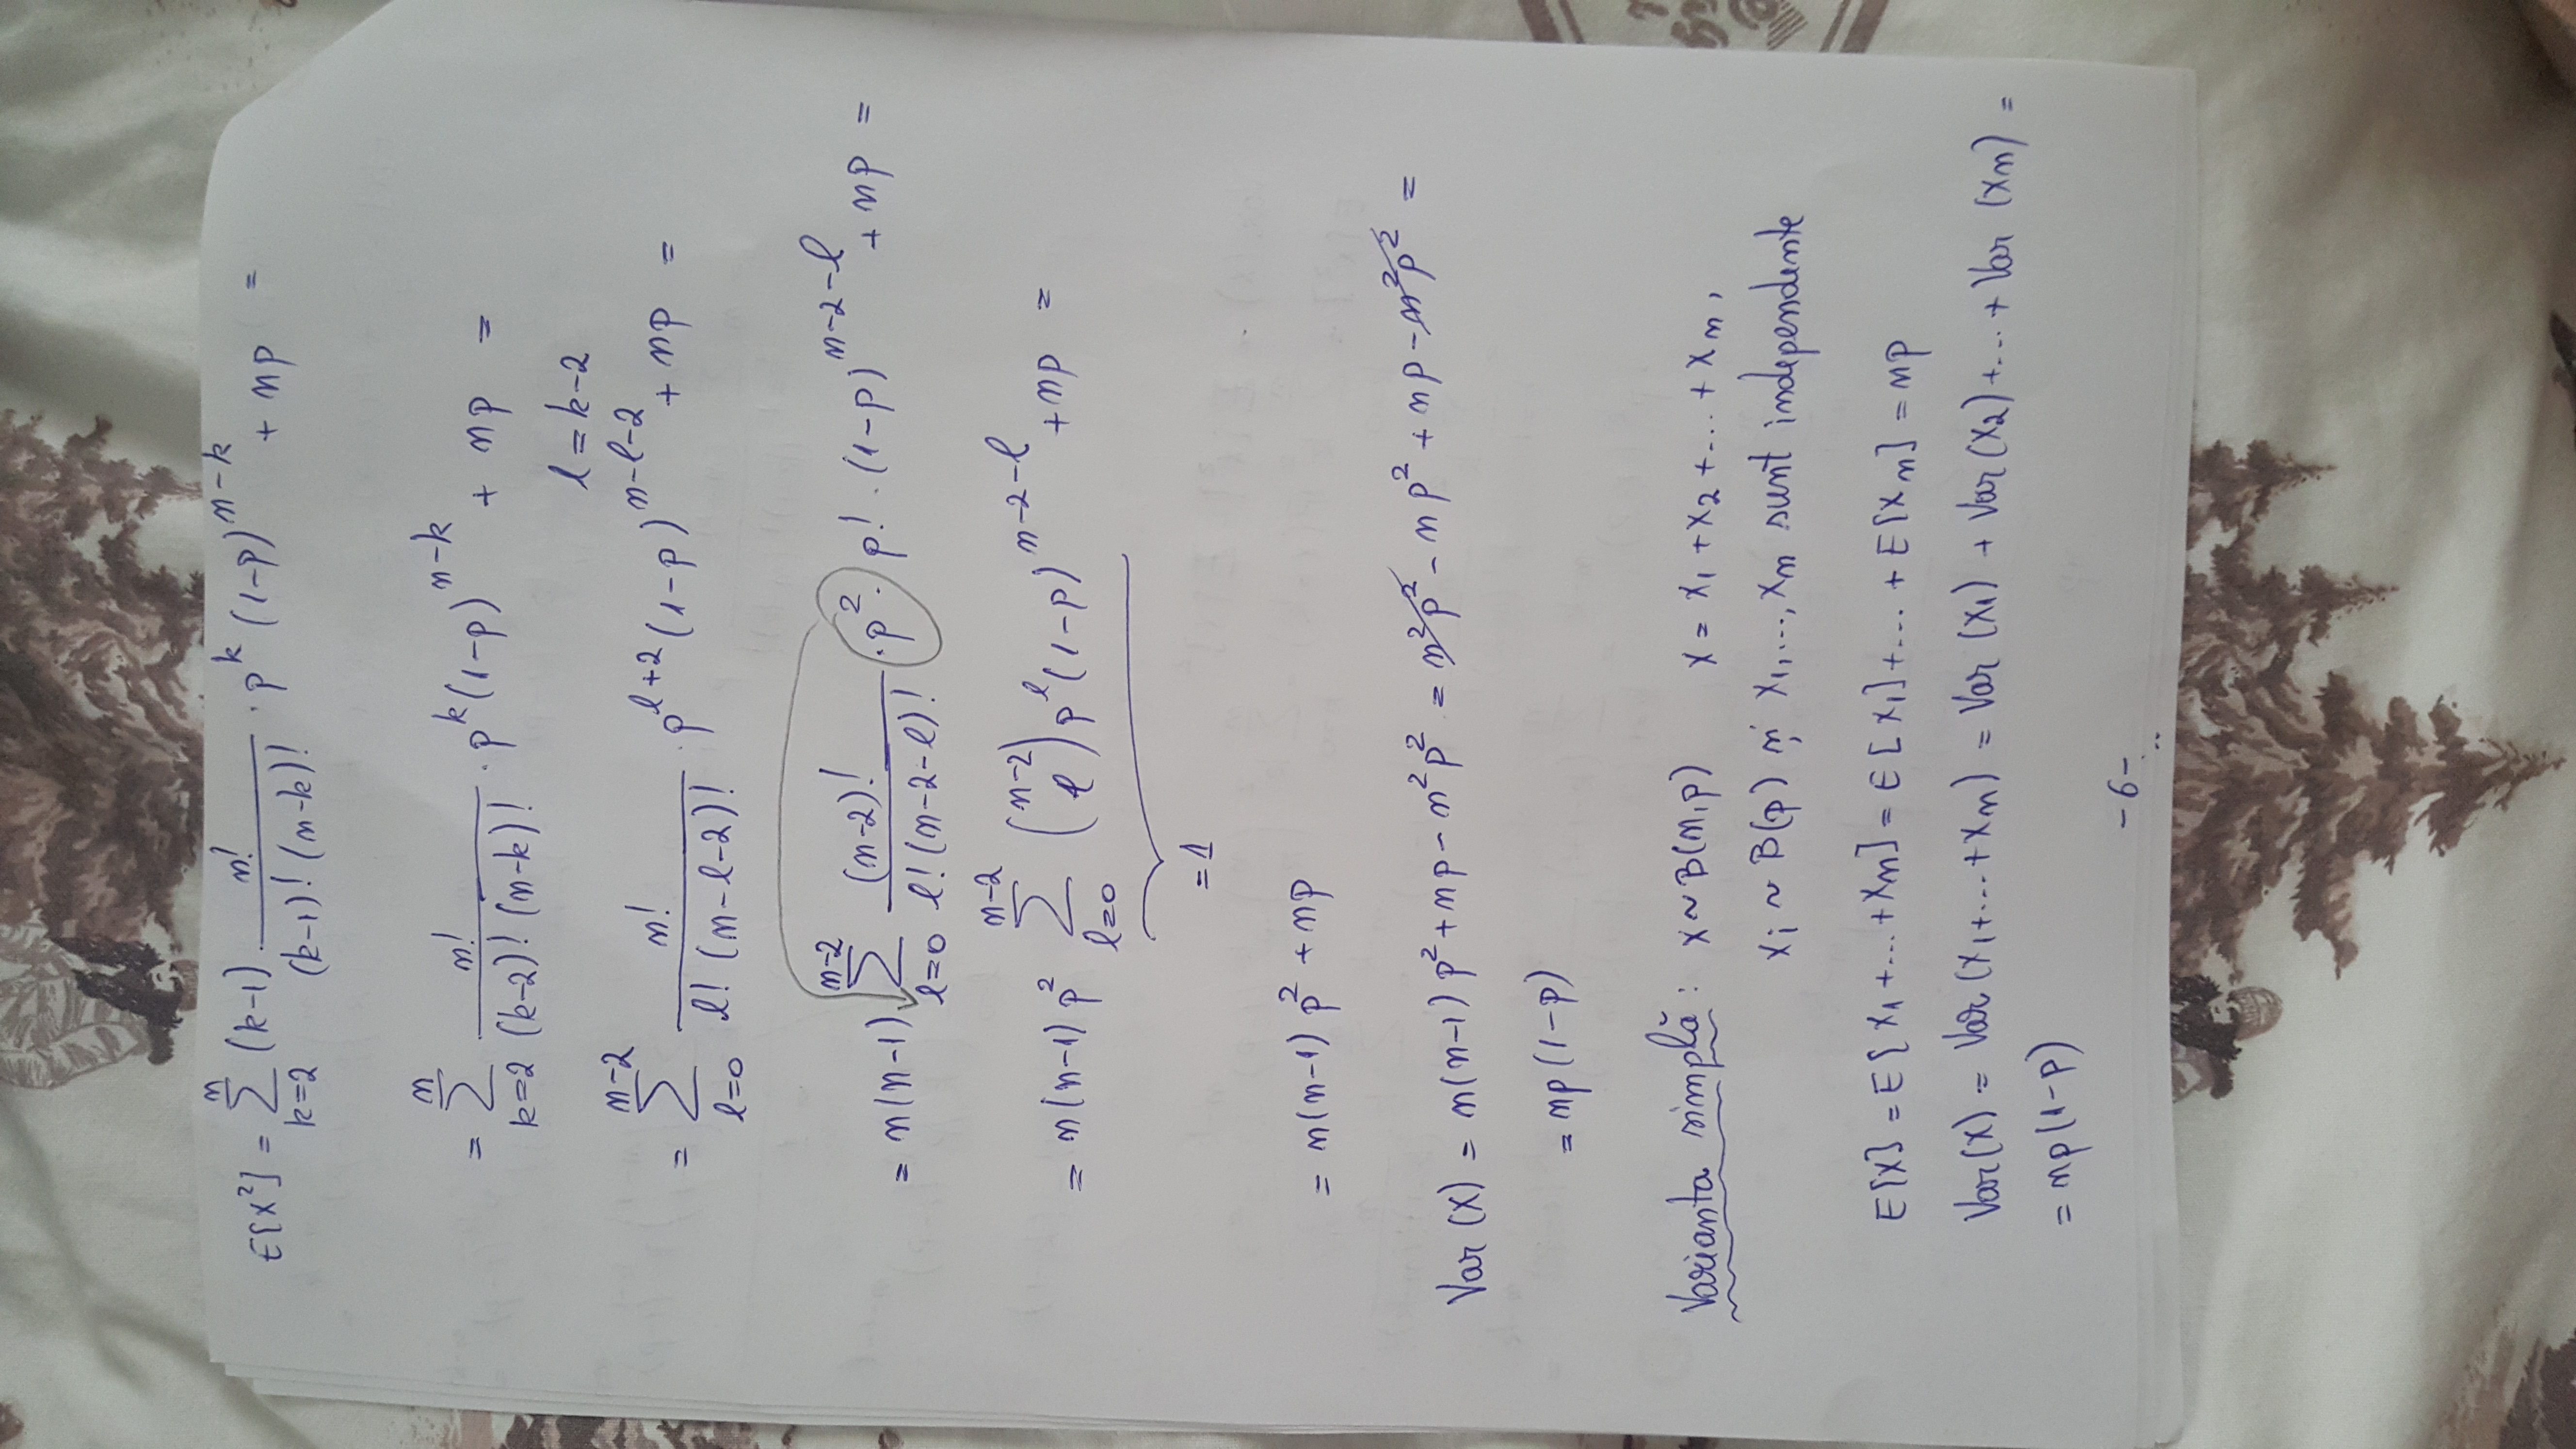 E[X²] = ∑_{k=2}^{n} (k-1) · n! / ((k-1)! (n-k)!) · p^k (1-p)^{n-k} + np =
= ∑_{k=2}^{n} n! / ((k-2)! (n-k)!) · p^k (1-p)^{n-k} + np =
l = k-2
= ∑_{l=0}^{n-2} n! / (l! (n-l-2)!) · p^{l+2} (1-p)^{n-l-2} + np =
= n(n-1) ∑_{l=0}^{n-2} (n-2)! / (l! (n-2-l)!) · p² · p! · (1-p)^{n-2-l} + np =
= n(n-1) p² ∑_{l=0}^{n-2} (n-2 l) p^l (1-p)^{n-2-l} + np =
= 1
= n(n-1) p² + np
Var (X) = n(n-1) p² + np - n²p² = n²p² - np² + np - n²p² =
= np (1-p)
Varianta simplă : X ~ B(n,p) X = X₁ + X₂ + ... + Xₙ ,
Xᵢ ~ B(p) și X₁, ..., Xₙ sunt independente
E[X] = E[X₁ + ... + Xₙ] = E[X₁] + ... + E[Xₙ] = np
Var(X) = Var (X₁ + ... + Xₙ) = Var (X₁) + Var (X₂) + ... + Var (Xₙ) =
= np(1-p)
-6-